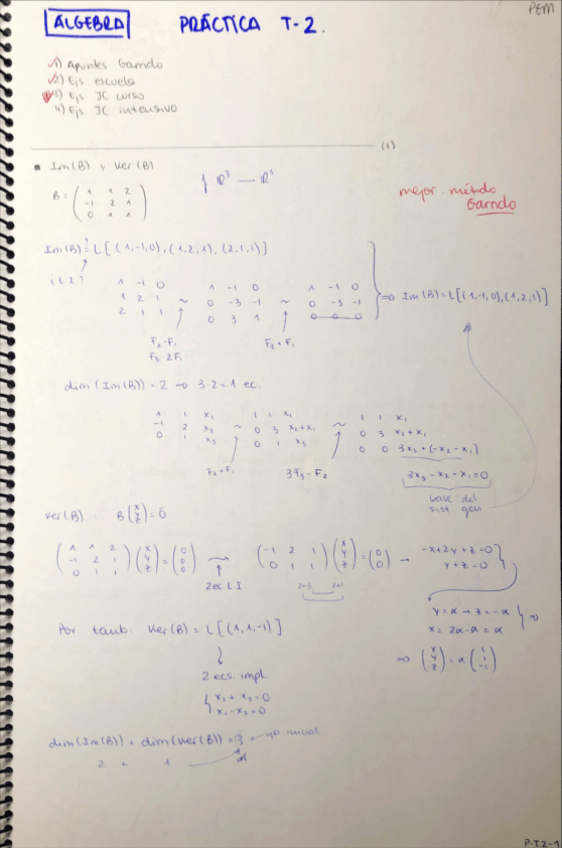 PEM
ÁLGEBRA PRÁCTICA T-2.
1) Apuntes Garrido
2) Ejs escuela
3) Ejs. JC curso
4) Ejs. JC intensivo
(1)
▪ Im(B) y Ker(B)
B = ( 1 1 2
-1 2 1
0 1 1 )
ℝ³ — ℝ³
mejor método
Garrido
Im(B) = L[(1,-1,0), (1,2,1), (2,1,1)]
¿L I?
1 -1 0 1 -1 0 1 -1 0
1 2 1 ~ 0 -3 -1 ~ 0 -3 -1 ⇒ Im(B) = L[(1,-1,0),(1,2,1)]
2 1 1 0 3 1 0 0 0
F₂-F₁ F₃+F₂
F₃-2F₁
dim(Im(B)) = 2 ⇒ 3-2=1 ec.
1 1 x₁ 1 1 x₁ 1 1 x₁
-1 2 x₂ ~ 0 3 x₂+x₁ ~ 0 3 x₂+x₁
0 1 x₃ 0 1 x₃ 0 0 3x₃+(-x₂-x₁)
F₂+F₁ 3F₃-F₂ 3x₃-x₂-x₁=0
base del
sist gen
Ker(B) B(x y z) = 0
( 1 1 2
-1 2 1
0 1 1 ) (x y z) = (0 0 0) → ( -1 2 1
0 1 1 ) (x y z) = (0 0) → -x+2y+z=0
y+z=0
2 ec L.I.
y=α → z=-α
x= 2α-α = α ⇒
⇒ (x y z) = α (1 1 -1)
Por tanto Ker(B) = L[(1,1,-1)]
2 ecs. impl
x₂ + x₃ = 0
x₁ - x₂ = 0
dim(Im(B)) + dim(Ker(B)) = 3
2 + 1
P-T.2-1